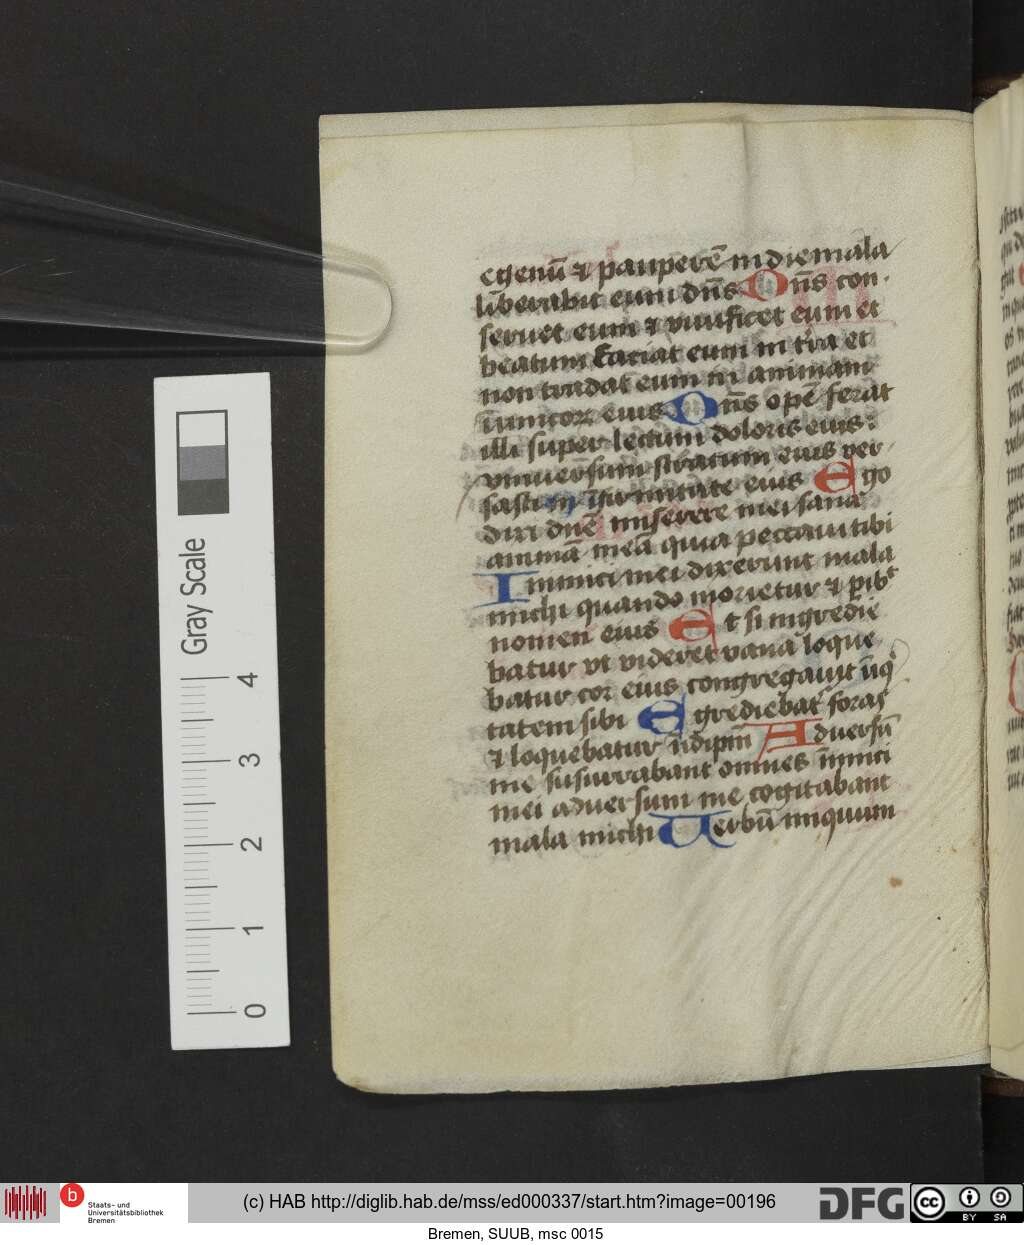 egenū ⁊ pauperē in die mala
liberabit eum dn̄s Dn̄s con-
seruet eum ⁊ viuificet eum et
beatum faciat eum in tr̄a et
non tradat eum in animam
īimicoꝝ eius Dn̄s opē ferat
illi super lectum doloris eius:
vniuersum stratum eius ver-
sasti in īfirmitate eius Ego
dixi dn̄e miserere mei sana
animā meā quia peccaui tibi
Inimici mei dixerunt mala
michi quando morietur ⁊ ꝑibᵗ
nomen eius Et si ingredie
batur vt videret vana loque
batur cor eius congregauit īiqͥ
tatem sibi Egrediebat᷑ foras
⁊ loquebatur īidipm̄ Aduersū
me susurrabant omnes īimici
mei aduersum me cogitabant
mala michi Uerbū iniquum
Gray Scale
4
3
2
1
0
b
Staats- und
Universitätsbibliothek
Bremen
(c) HAB http://diglib.hab.de/mss/ed000337/start.htm?image=00196
DFG
cc
BY SA
Bremen, SUUB, msc 0015